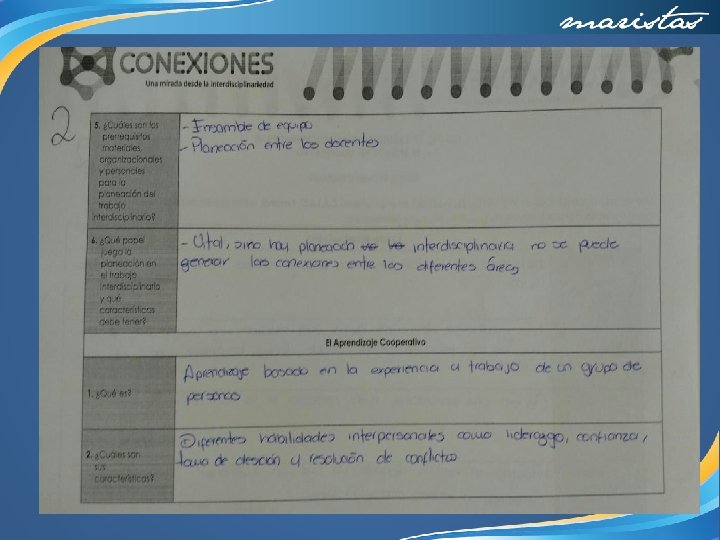 maristas
CONEXIONES
Una mirada desde la interdisciplinariedad
2
5. ¿Cuáles son los
prerrequisitos
materiales,
organizacionales
y personales
para la
planeación del
trabajo
interdisciplinario?
- Ensamble de equipo
- Planeación entre los docentes
6. ¿Qué papel
juega la
planeación en
el trabajo
interdisciplinario
y qué
características
debe tener?
- Vital, sino hay planeación interdisciplinaria no se puede
generar las conexiones entre las diferentes áreas
El Aprendizaje Cooperativo
1. ¿Qué es?
Aprendizaje basado en la experiencia y trabajo de un grupo de
personas
2. ¿Cuáles son
sus
características?
Diferentes habilidades interpersonales como liderazgo, confianza,
toma de desción y resolución de conflictos